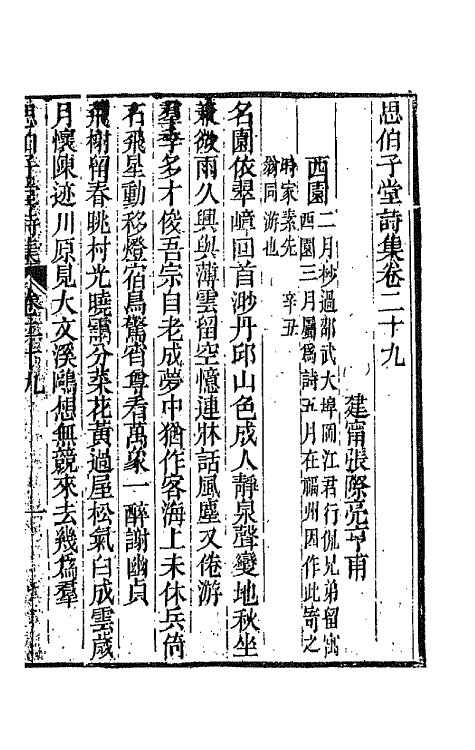 思伯子堂詩集卷二十九
建甯張際亮亨甫
西園
二月杪過邵武大埠岡江君行侃兄弟留寓
西園三月屬為詩五月在福州因作此寄之
時家素先
翁同游也
辛丑
名園依翠嶂回首渺丹邱山色成人靜泉聲變地秋坐
兼欲雨久興與薄雲留空憶連牀話風塵又倦游
羣季多才俊吾宗自老成夢中猶作客海上未休兵倚
石飛星動移燈宿鳥驚宵尊看萬象一醉謝幽貞
飛榭留春眺村光曉靄分菜花黃過屋松氣白成雲歲
月懷陳迹川原見大文溪鷗想無競來去幾為羣
思伯子堂詩集
卷二十九
一